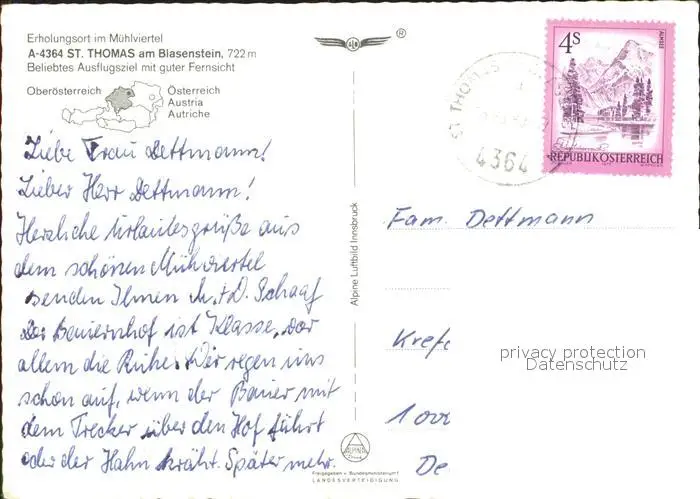 Erholungsort im Mühlviertel
A-4364 ST. THOMAS am Blasenstein, 722 m
Beliebtes Ausflugsziel mit guter Fernsicht
Oberösterreich
Österreich
Austria
Autriche
®
4S
ALMSEE
REPUBLIK ÖSTERREICH
ST. THOMAS
4364
Liebe Frau Dettmann!
Lieber Herr Dettmann!
Herzliche Urlaubsgrüße aus
dem schönen Mühlviertel
senden Ihnen M.+D. Schaaf
Der Bauernhof ist Klasse, vor
allem die Ruhe. Wir regen uns
schon auf, wenn der Bauer mit
dem Trecker über den Hof fährt
oder der Hahn kräht. Später mehr.
Alpine Luftbild Innsbruck
Fam. Dettmann
Krefe
1000
De
privacy protection
Datenschutz
ALPINE
Freigegeben v. Bundesministerium f.
LANDESVERTEIDIGUNG